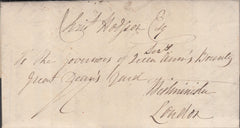 Hodgson Esq
To the Governors of Queen Ann's Bounty
Great Dean's Yard
Westminster
London